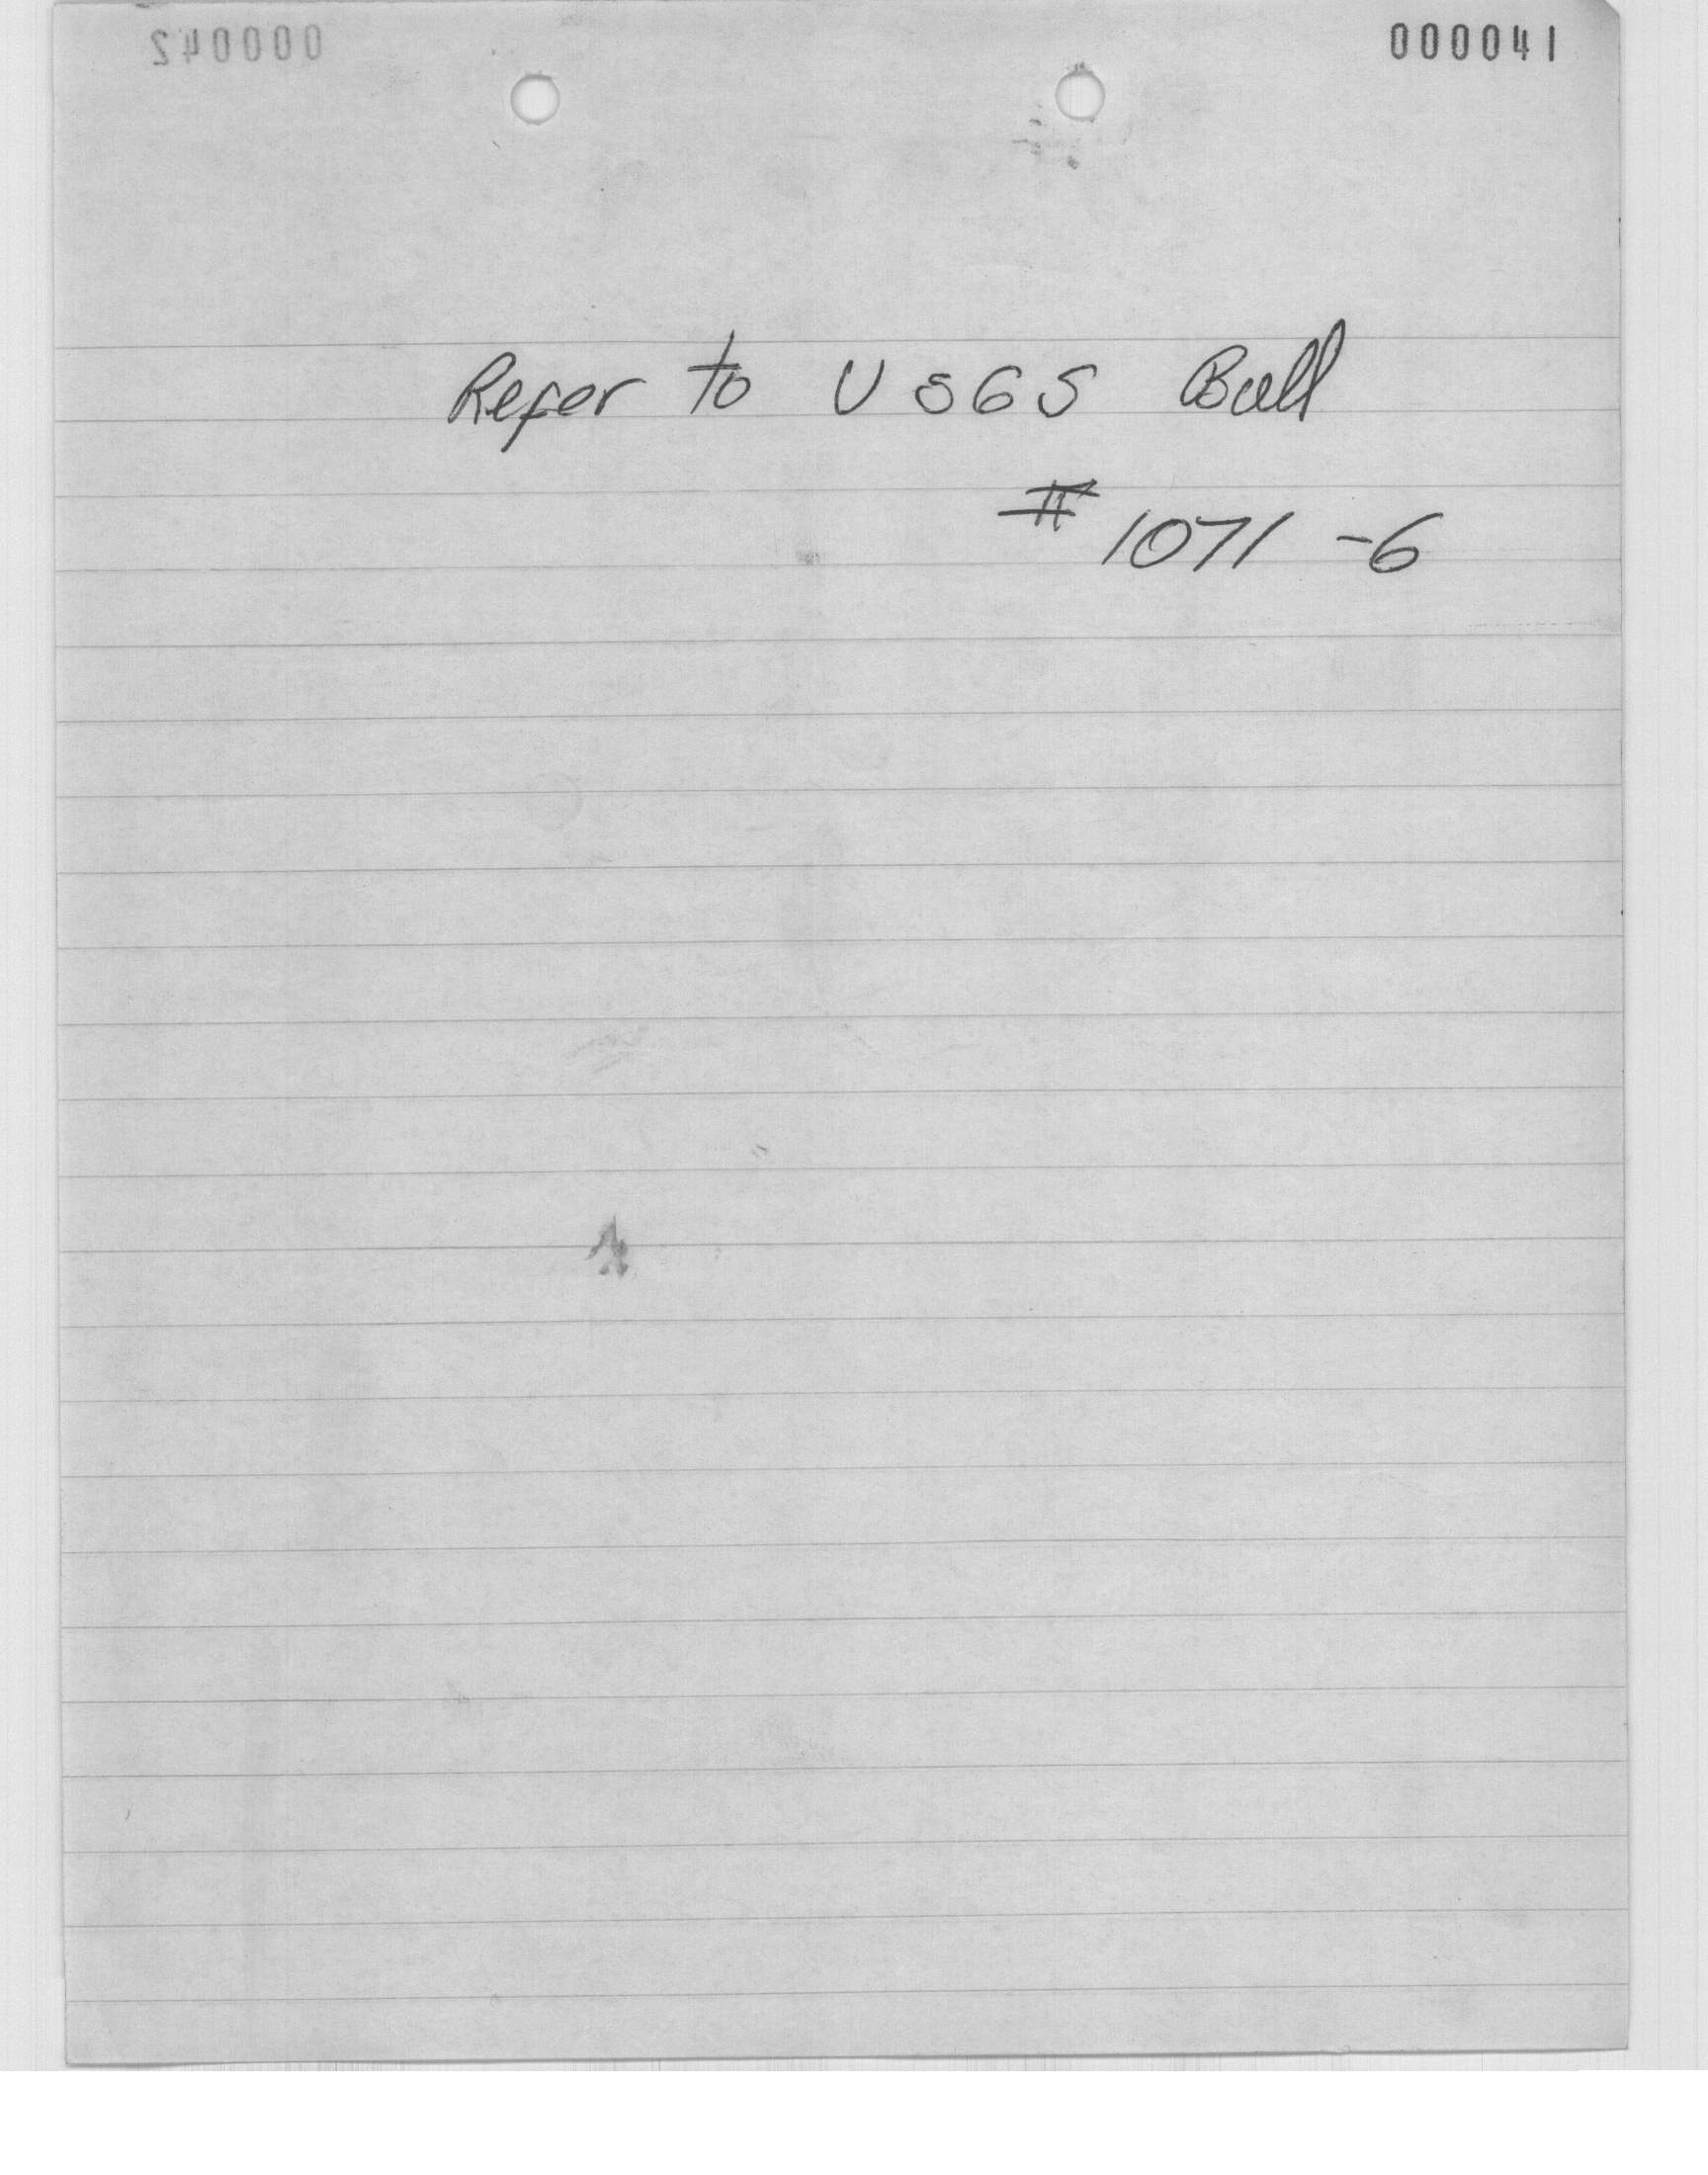 000042 000041
Refer to USGS Bull
# 1071 -6